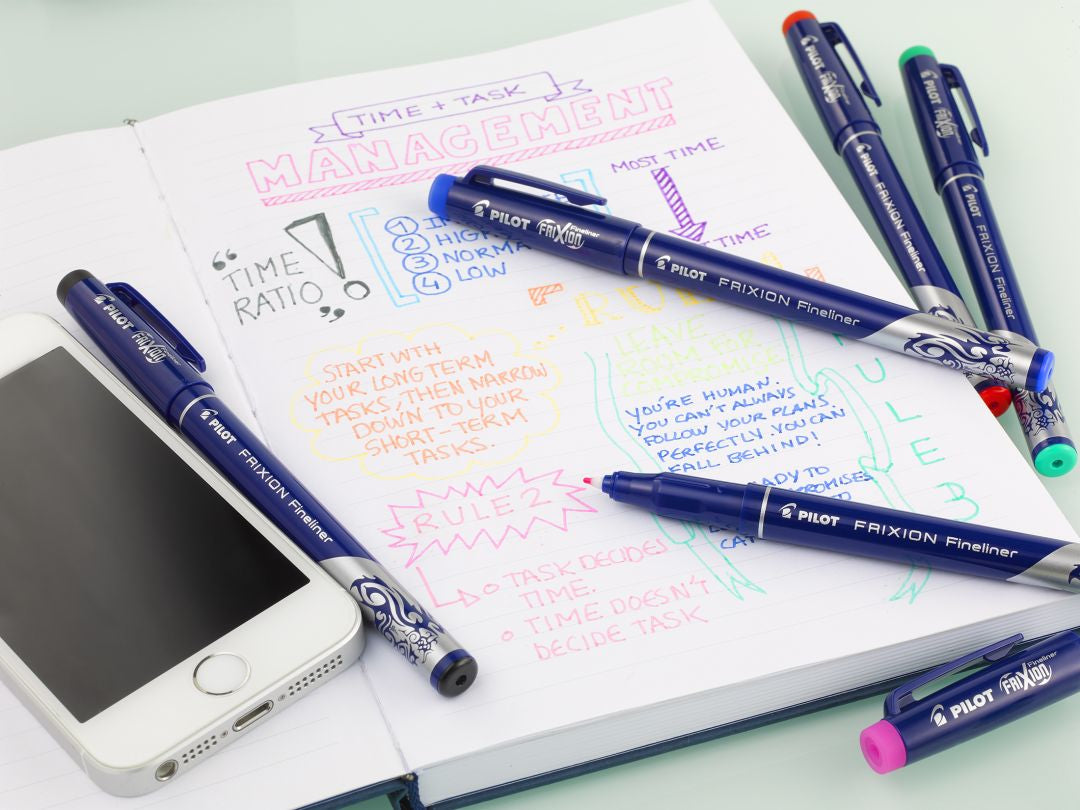 TIME + TASK
MANAGEMENT
MOST TIME
TIME
“TIME
RATIO”
!
1
2 HIGH
3 NORMA
4 LOW
RU
START WTH
YOUR LONG TERM
TASKS, THEN NARROW
DOWN TO YOUR
SHORT-TERM
TASKS.
LEAVE
ROOM FOR
COMPROMISE
YOU'RE HUMAN.
YOU CAN'T ALWAYS
FOLLOW YOUR PLANS
PERFECTLY. YOU CAN
FALL BEHIND!
ULE 3
RULE 2
TASK DECIDES
TIME.
TIME DOESN'T
DECIDE TASK
PILOT FRIXION Fineliner
PILOT FRIXION Fineliner
PILOT FRIXION Fineliner
PILOT FRIXION Fineliner
PILOT FRIXION
PILOT FRIXION Fineliner
PILOT FRIXION
PILOT FRIXION Fineliner
PILOT FRIXION Fineliner
PILOT FRIXION Fineliner